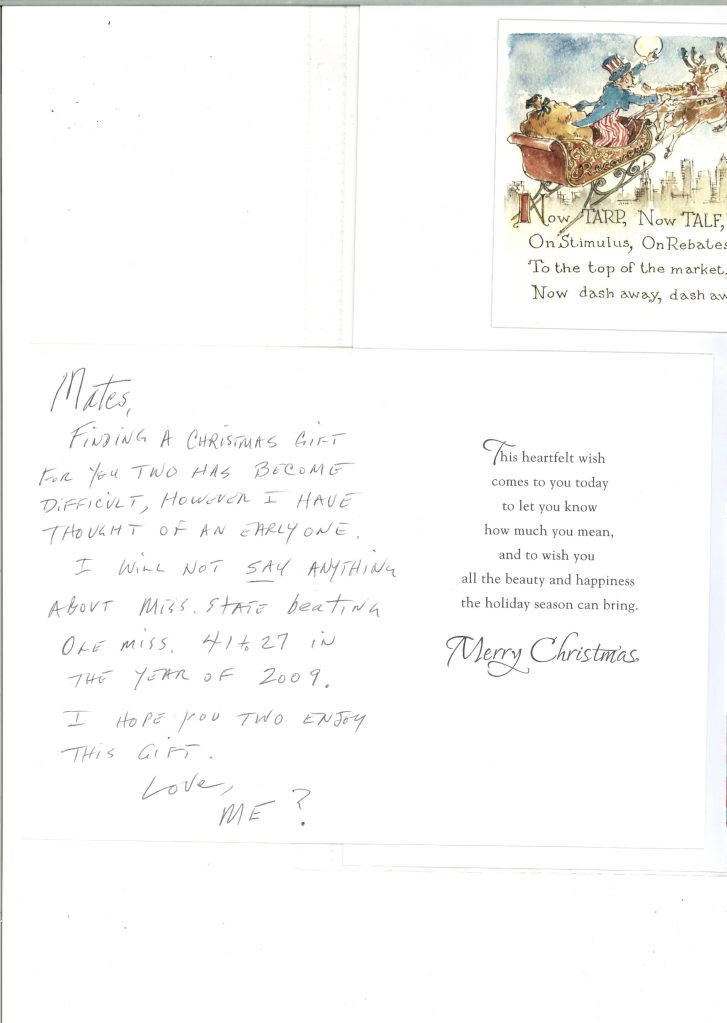 Now TARP, Now TALF,
On Stimulus, On Rebates
To the top of the market,
Now dash away, dash aw
Mates,
FINDING A CHRISTMAS GIFT
FOR YOU TWO HAS BECOME
DIFFICULT, HOWEVER I HAVE
THOUGHT OF AN EARLY ONE.
I WILL NOT SAY ANYTHING
ABOUT MISS. STATE beating
OLE MISS. 41 to 27 IN
THE YEAR OF 2009.
I HOPE YOU TWO ENJOY
THIS GIFT.
Love,
ME ?
This heartfelt wish
comes to you today
to let you know
how much you mean,
and to wish you
all the beauty and happiness
the holiday season can bring.
Merry Christmas